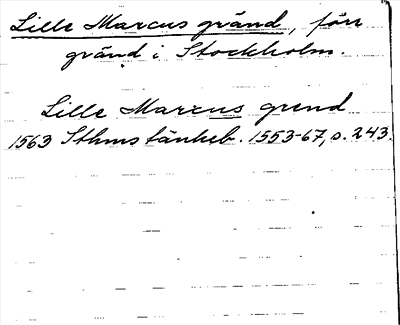 Lille Marcus gränd, förr
gränd i Stockholm.
Lille Marcus grend
1563 Sthms tänkeb. 1553-67, s. 243.